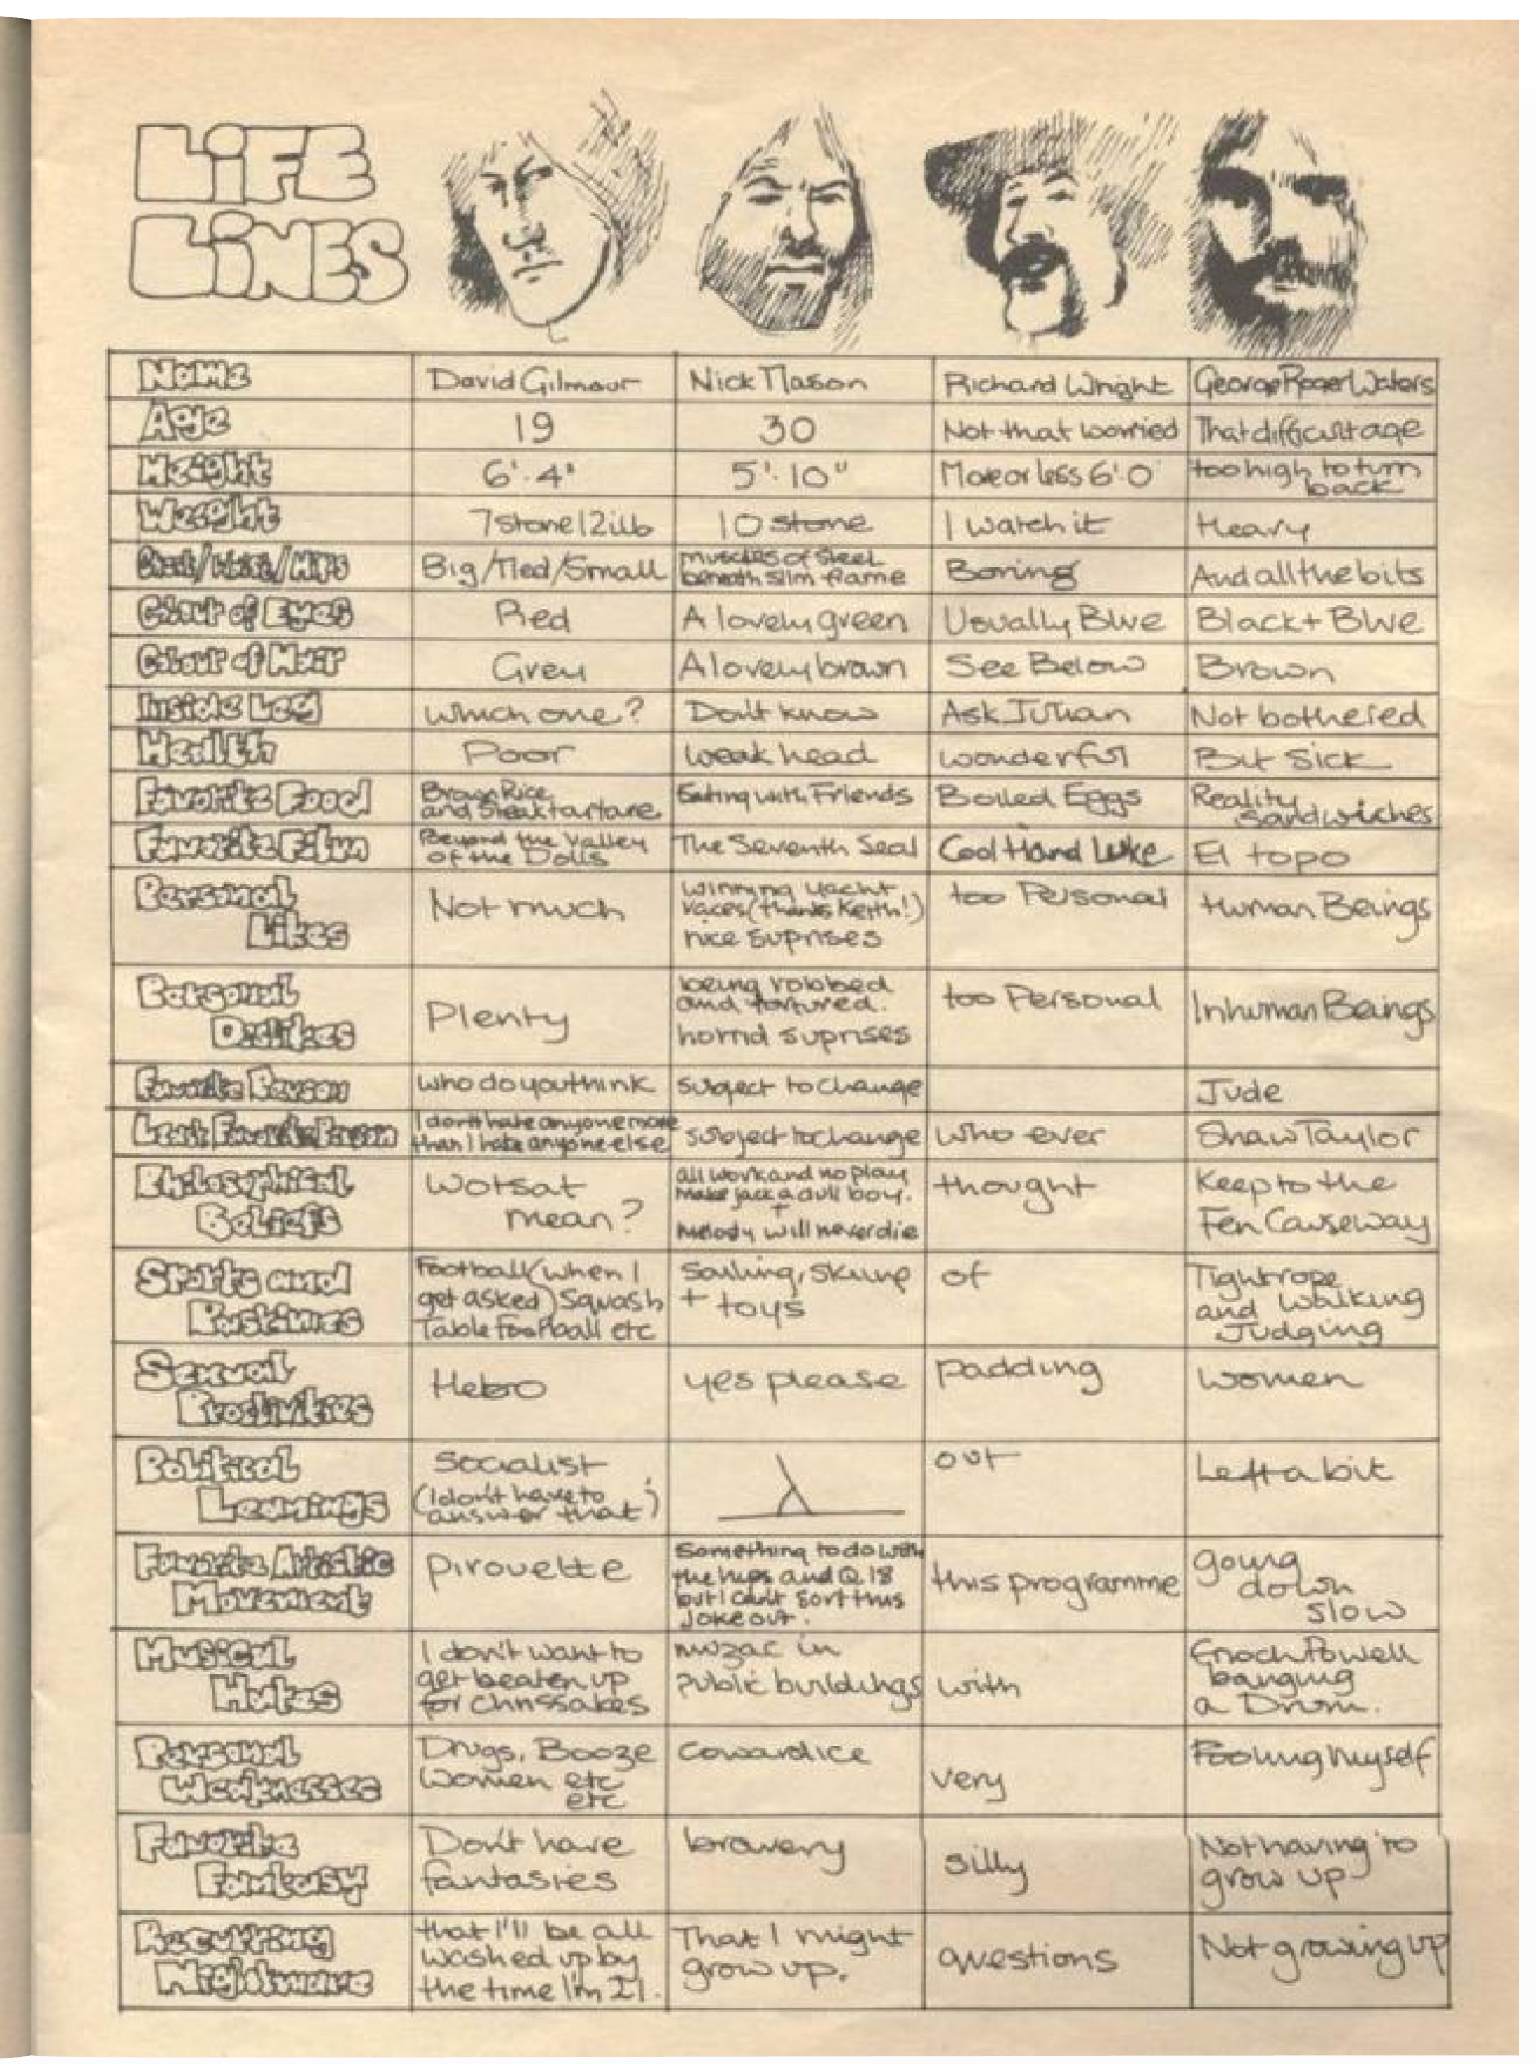 LiFE
LiNES
Name David Gilmour Nick Mason Richard Wright George Roger Waters
Age 19 30 Not that worried That difficult age
Height 6'.4" 5'.10" More or less 6'.0 too high to turn
back
Weight 7 stone 12 lb 10 stone I watch it Heavy
Chest/Waist/Hips Big/Med/Small muscles of steel
beneath slim frame Boring And all the bits
Colour of Eyes Red A lovely green Usually Blue Black + Blue
Colour of Hair Grey A lovely brown See Below Brown
Inside Leg Which one? Don't know Ask Julian Not bothered
Health Poor Weak head wonderful But Sick
Favorite Food Brown Rice
and Steak tartare Eating with Friends Boiled Eggs Reality
Sandwiches
Favorite Film Beyond the Valley
of the Dolls The Seventh Seal Cool Hand Luke El topo
Personal
Likes Not much winning yacht
races (thanks Keith!)
nice suprises too Personal Human Beings
Personal
Dislikes Plenty being robbed
and tortured.
horrid suprises too Personal Inhuman Beings
Favorite Person who do you think subject to change Jude
Least Favorite Person I don't hate anyone more
than I hate anyone else subject to change Who ever Shaw Taylor
Philosophical
Beliefs Wotsat
mean? all work and no play
make jack a dull boy.
+
Melody will never die thought Keep to the
Fen Causeway
Sports and
Pastimes Football (when I
get asked) Squash
Table Football etc Sailing, skiing
+ toys of Tightrope
and walking
Judging
Sexual
Proclivities Hetro yes please padding Women
Political
Leanings Socialist
(I don't have to
answer that) out Left a bit
Favorite Artistic
Movement Pirouette Something to do with
the hips and Q 18
but I can't sort this
joke out. this programme going
down
slow
Musical
Hates I don't want to
get beaten up
for chrissakes muzac in
Public buildings with Enoch Powell
banging
a Drum.
Personal
Weaknesses Drugs, Booze
Women etc
etc Cowardice very Fooling myself
Favorite
Fantasy Don't have
fantasies bravery silly Not having to
grow up
Recurring
Nightmare that I'll be all
washed up by
the time I'm 21. That I might
grow up. questions Not growing up